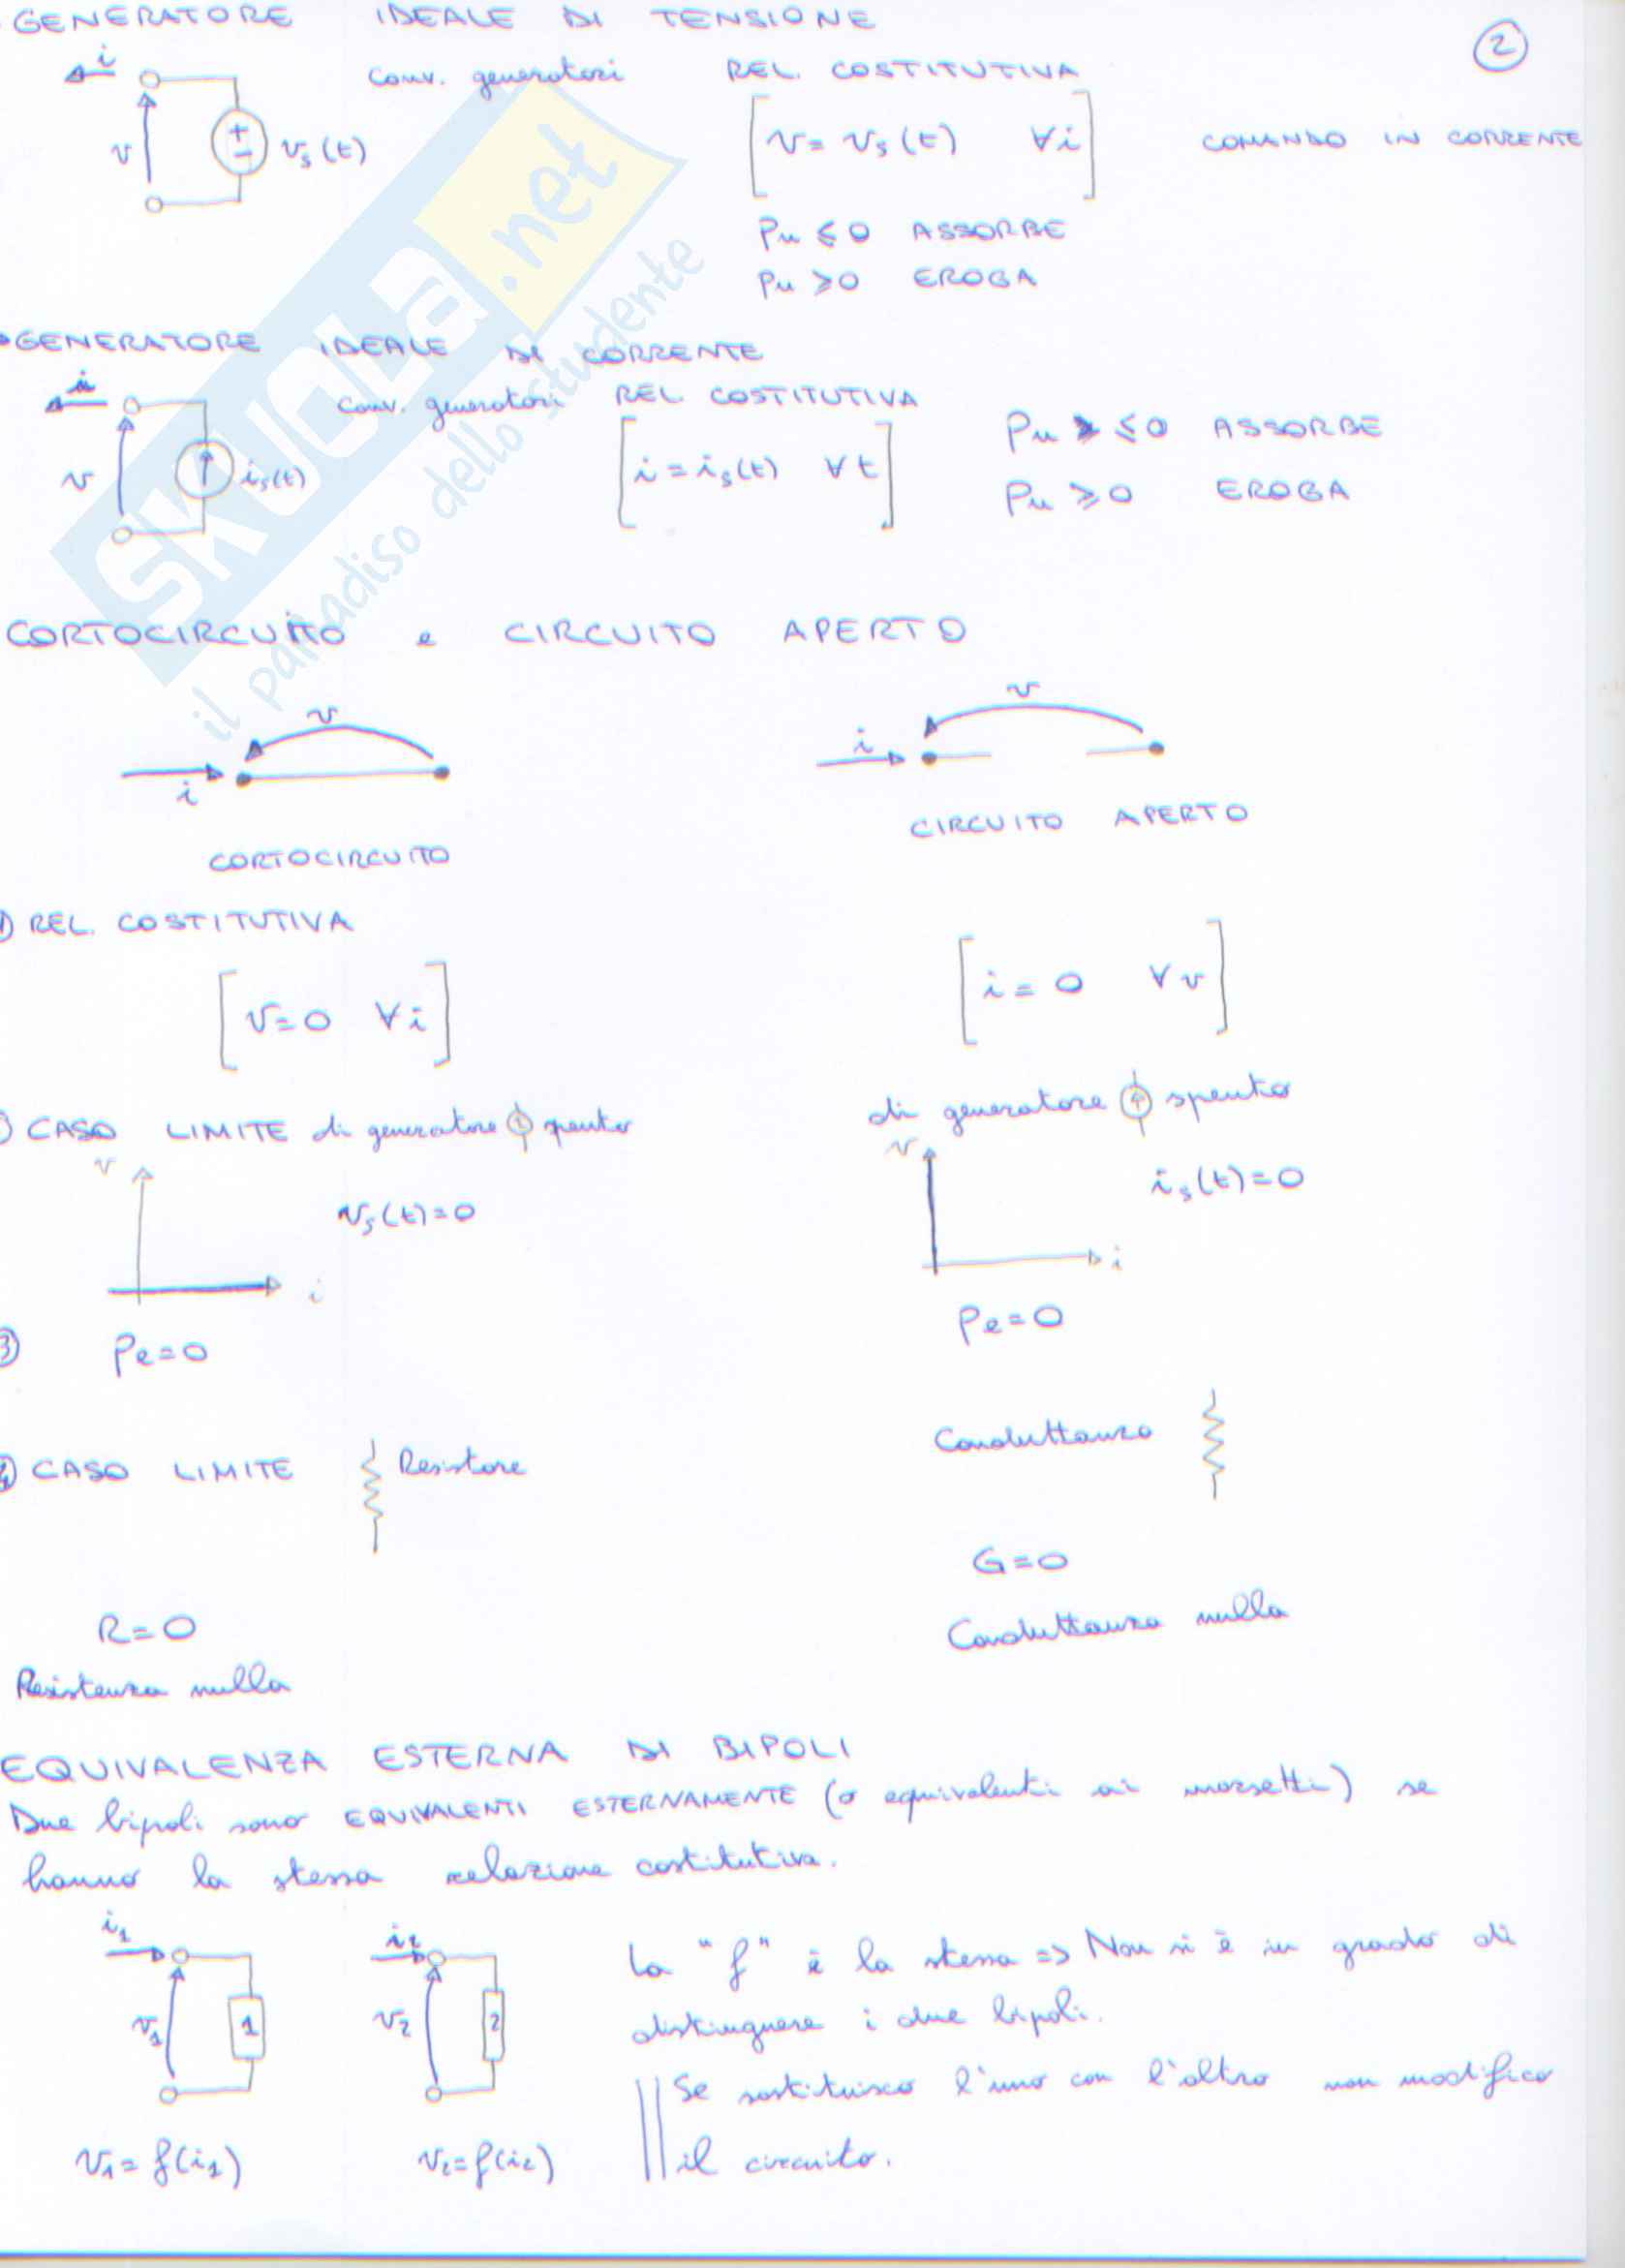 GENERATORE IDEALE DI TENSIONE
2
i
Conv. generatori
REL. COSTITUTIVA
v
+
-
vs(t)
[v = vs(t) ∀i]
COMANDO IN CORRENTE
Pu ≤ 0 ASSORBE
Pu ≥ 0 EROGA
GENERATORE IDEALE DI CORRENTE
i
Conv. generatori
REL. COSTITUTIVA
v
is(t)
[i = is(t) ∀t]
Pu ≤ 0 ASSORBE
Pu ≥ 0 EROGA
SKUOLA.net
il paradiso dello studente
CORTOCIRCUITO e CIRCUITO APERTO
v
i
CORTOCIRCUITO
v
i
CIRCUITO APERTO
1) REL. COSTITUTIVA
[v=0 ∀i]
[i = 0 ∀v]
) CASO LIMITE di generatore spento
di generatore spento
v
vs(t)=0
i
v
is(t)=0
i
3) Pe=0
Pe=0
4) CASO LIMITE Resistore
Conduttanza
R=0
Resistenza nulla
G=0
Conduttanza nulla
EQUIVALENZA ESTERNA DI BIPOLI
Due bipoli sono EQUIVALENTI ESTERNAMENTE (o equivalenti ai morsetti) se
hanno la stessa relazione costitutiva.
i1
v1
1
v1= f(i1)
i2
v2
2
v2=f(i2)
La "f" è la stessa => Non si è in grado di
distinguere i due bipoli.
Se sostituisco l'uno con l'altro non modifico
il circuito.